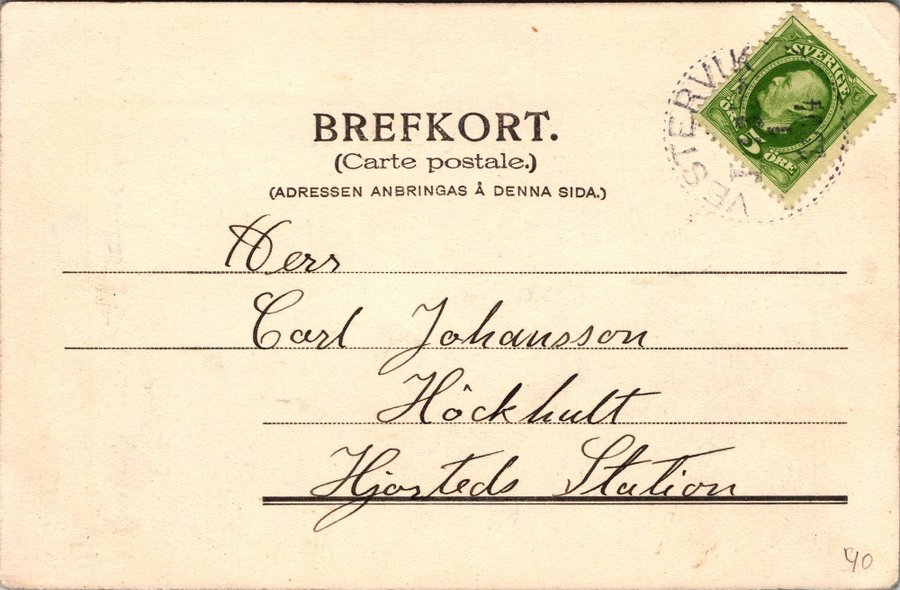 BREFKORT.
(Carte postale.)
(ADRESSEN ANBRINGAS Å DENNA SIDA.)
SVERIGE
5 ÖRE
VESTERVIK
Herr
Carl Johansson
Höckhult
Hjorteds Station
40